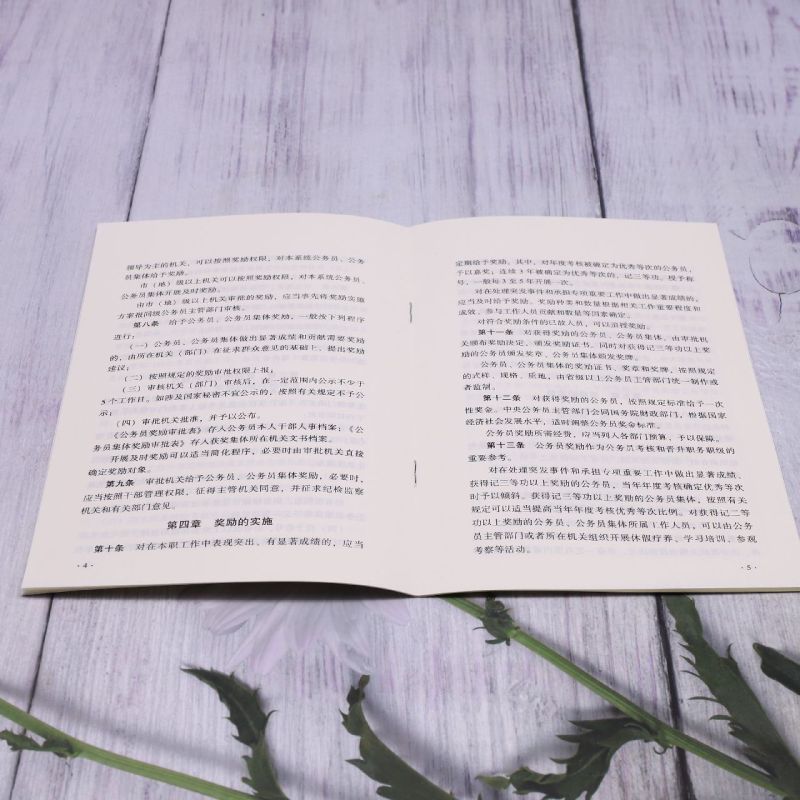 领导为主的机关，可以按照奖励权限，对本系统公务员、公务
员集体给予奖励。
市（地）级以上机关可以按照奖励权限，对本系统公务员、
公务员集体开展及时奖励。
由市（地）级以上机关审批的奖励，应当事先将奖励实施
方案报同级公务员主管部门审核。
第八条　给予公务员、公务员集体奖励，一般按下列程序
进行：
（一）公务员、公务员集体做出显著成绩和贡献需要奖励
的，由所在机关（部门）在征求群众意见的基础上，提出奖励
建议；
（二）按照规定的奖励审批权限上报；
（三）审核机关（部门）审核后，在一定范围内公示不少于
5个工作日。如涉及国家秘密不宜公示的，按照有关规定不予公
示；
（四）审批机关批准，并予以公布。
《公务员奖励审批表》存入公务员本人干部人事档案；《公
务员集体奖励审批表》存入获奖集体所在机关文书档案。
开展及时奖励可以适当简化程序，必要时由审批机关直接
确定奖励对象。
第九条　审批机关给予公务员、公务员集体奖励，必要时，
应当按照干部管理权限，征得主管机关同意，并征求纪检监察
机关和有关部门意见。
第四章　奖励的实施
第十条　对在本职工作中表现突出、有显著成绩的，应当
· 4 ·
定期给予奖励。其中，对年度考核被确定为优秀等次的公务员，
予以嘉奖；连续3年被确定为优秀等次的，记三等功。授予称
号，一般每3至5年开展一次。
对在处理突发事件和承担专项重要工作中做出显著成绩的，
应当及时给予奖励。奖励种类和数量根据相关工作重要程度和
成效、参与工作人员贡献和数量等因素确定。
对符合奖励条件的已故人员，可以追授奖励。
第十一条　对获得奖励的公务员、公务员集体，由审批机
关颁布奖励决定，颁发奖励证书。同时对获得记三等功以上奖
励的公务员颁发奖章，公务员集体颁发奖牌。
公务员、公务员集体的奖励证书、奖章和奖牌，按照规定
的式样、规格、质地，由省级以上公务员主管部门统一制作或
者监制。
第十二条　对获得奖励的公务员，按照规定标准给予一次
性奖金。中央公务员主管部门会同国务院财政部门，根据国家
经济社会发展水平，适时调整公务员奖金标准。
公务员奖励所需经费，应当列入各部门预算，予以保障。
第十三条　公务员奖励作为公务员考核和晋升职务职级的
重要参考。
对在处理突发事件和承担专项重要工作中做出显著成绩、
获得记三等功以上奖励的公务员，当年年度考核确定优秀等次
时予以倾斜。获得记三等功以上奖励的公务员集体，按照有关
规定可以适当提高当年年度考核优秀等次比例。对获得记二等
功以上奖励的公务员、公务员集体所属工作人员，可以由公务
员主管部门或者所在机关组织开展休假疗养、学习培训、参观
考察等活动。
· 5 ·